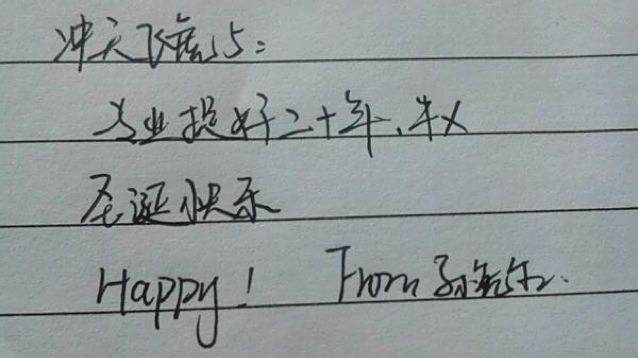 冲天飞15:
业提好二十年、牛X
圣诞快乐
Happy! From